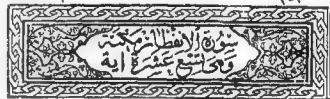 سورة الانفطار مكية
وهى تسع عشرة اية